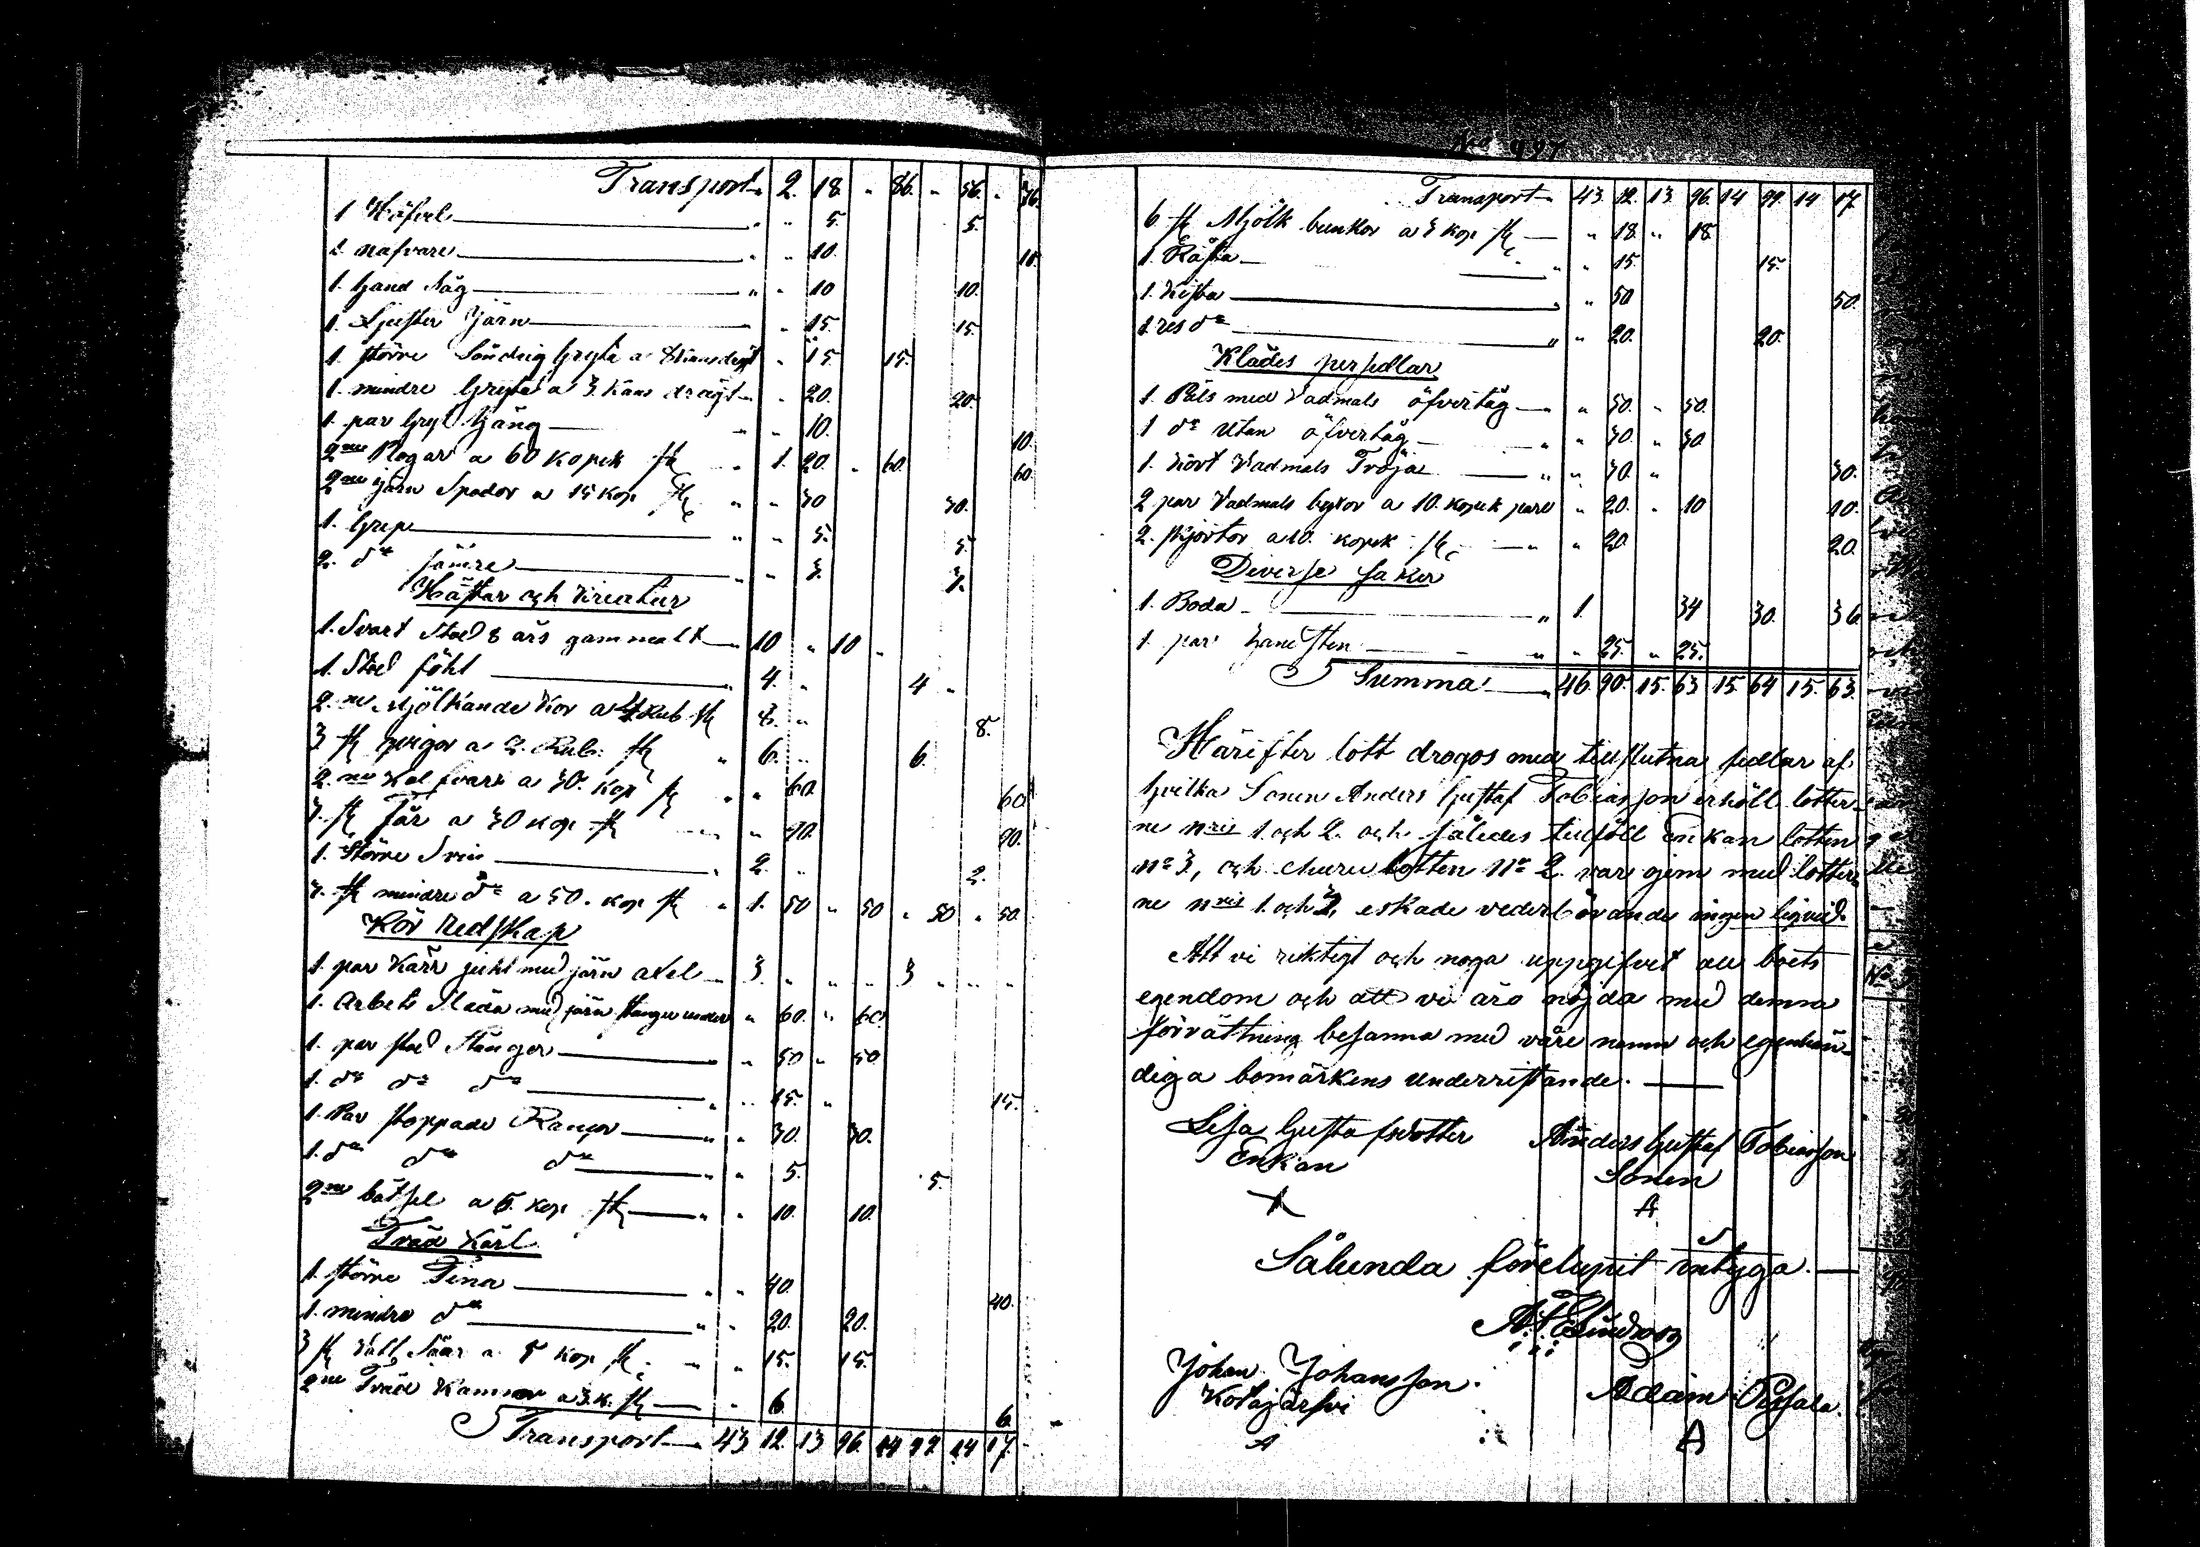 Transport „ 2. 18. „ 86. „ 56. „ 76.
1 Häfvel „ „ 5. 5.
2 nafvare „ „ 10. 10.
1. hand såg „ „ 10 10.
1. Ljuster Järn „ 15. 15.
1. större Söndrig Gryta a „ 15. 15.
1. mindre Gryta a 3. kans drägt „ „ 20. 20.
1. par Gryt „ „ 10. 10.
2ne Plogar a 60 kopek st „ 1. 20. „ 60. 60.
2ne järn Spador a 15 kop. st „ „ 30 30.
1. Grep „ „ 5. 5.
2. do sämre „ „ 3. 3.
Hästar och kreatur
1. Svart Sto 8 års gammalt 10 „ 10 „
1. Sto föhl „ 4. „ 4 „
2.ne Mjölkande Kor a 4 Rub. st 8. „ 8.
3 st qvigor a 2. Rub. st „ 6. „ 6.
2.ne Kal a 30. kop st „ „ 60. 60.
3. st Får a 30 kop. st „ 90. 90.
1. Större Svin „ 2. „ 2.
3. st mindre do a 50. kop st „ 1. 50 „ 50 „ 50 „ 50.
Kör redskap
1. par Kärr juhl med järn axel 3. „ „ „ 3 „ „ „
1. Arbets Släda med järn stänger under „ 60. „ 60.
1. par Stänger „ 50 „ 50
1. do do do „ „ 15. „ 15.
1. Par stoppade Rankor „ „ 30. 30.
1. do do do „ „ 5. 5.
2ne bätsel a 5. kop. st „ „ 10. 10.
Träd Kärl
1. större Tina „ „ 40. 40.
1. mindre do „ „ 20. 20.
3 st Vatt. Såar a 5 kop st „ „ 15. 15.
2ne Träd a 3. k. st „ 6 6.
Transport 43 12. 13 96. 14 92 14 17.
No 997
Transport 43. 12. 13. 96. 14 99. 14 17.
6 st Mjölk bunkor a 3 kop st „ 18. „ 18.
1. Råcka „ „ 15. 15.
1. Kista „ 50 50.
1. res do „ „ 20. 20.
Klädes persedlar
1. Päls med Vadmals öfvertåg „ „ 50. „ 50.
1 do utan öfvertåg „ 30. „ 30
1. kort Vadmals Tröja „ „ 30. „ 30.
2 par Vadmals byxor a 10. kopek paret „ 20. „ 10 10.
2. skjortor a 10. kopek st „ „ 20. 20.
Diverse saker
1. Boda „ 1. 34 30. 36
1. par handsten „ „ 25. „ 25.
Summa „ 46. 90. 15. 63 15. 64 15. 63.
Härefter lott drogos med tillslutna sedlar af
hvilka Sonen Anders Gustaf Tobiasson erhöll lotter-
ne nris 1. och 2. och således tillföll Enkan lotten
no 3, och churu lotten No 2. var gem med lotter-
ne nris 1. och 3, eskade vederbörande ingen liqvid.
Att vi riktigt och noga uppgifvit all boets
egendom och att vi äro nöjda med denna
förrättning besanna med våre namn och egenhän-
diga bomärkens underristande.
Lisa Gustafsdotter Anders Gustaf Tobiasson
Enkan Sonen
A
Sålunda förelupit intyga.
Johan Johansson. Adam
Kotajärfvi
A A